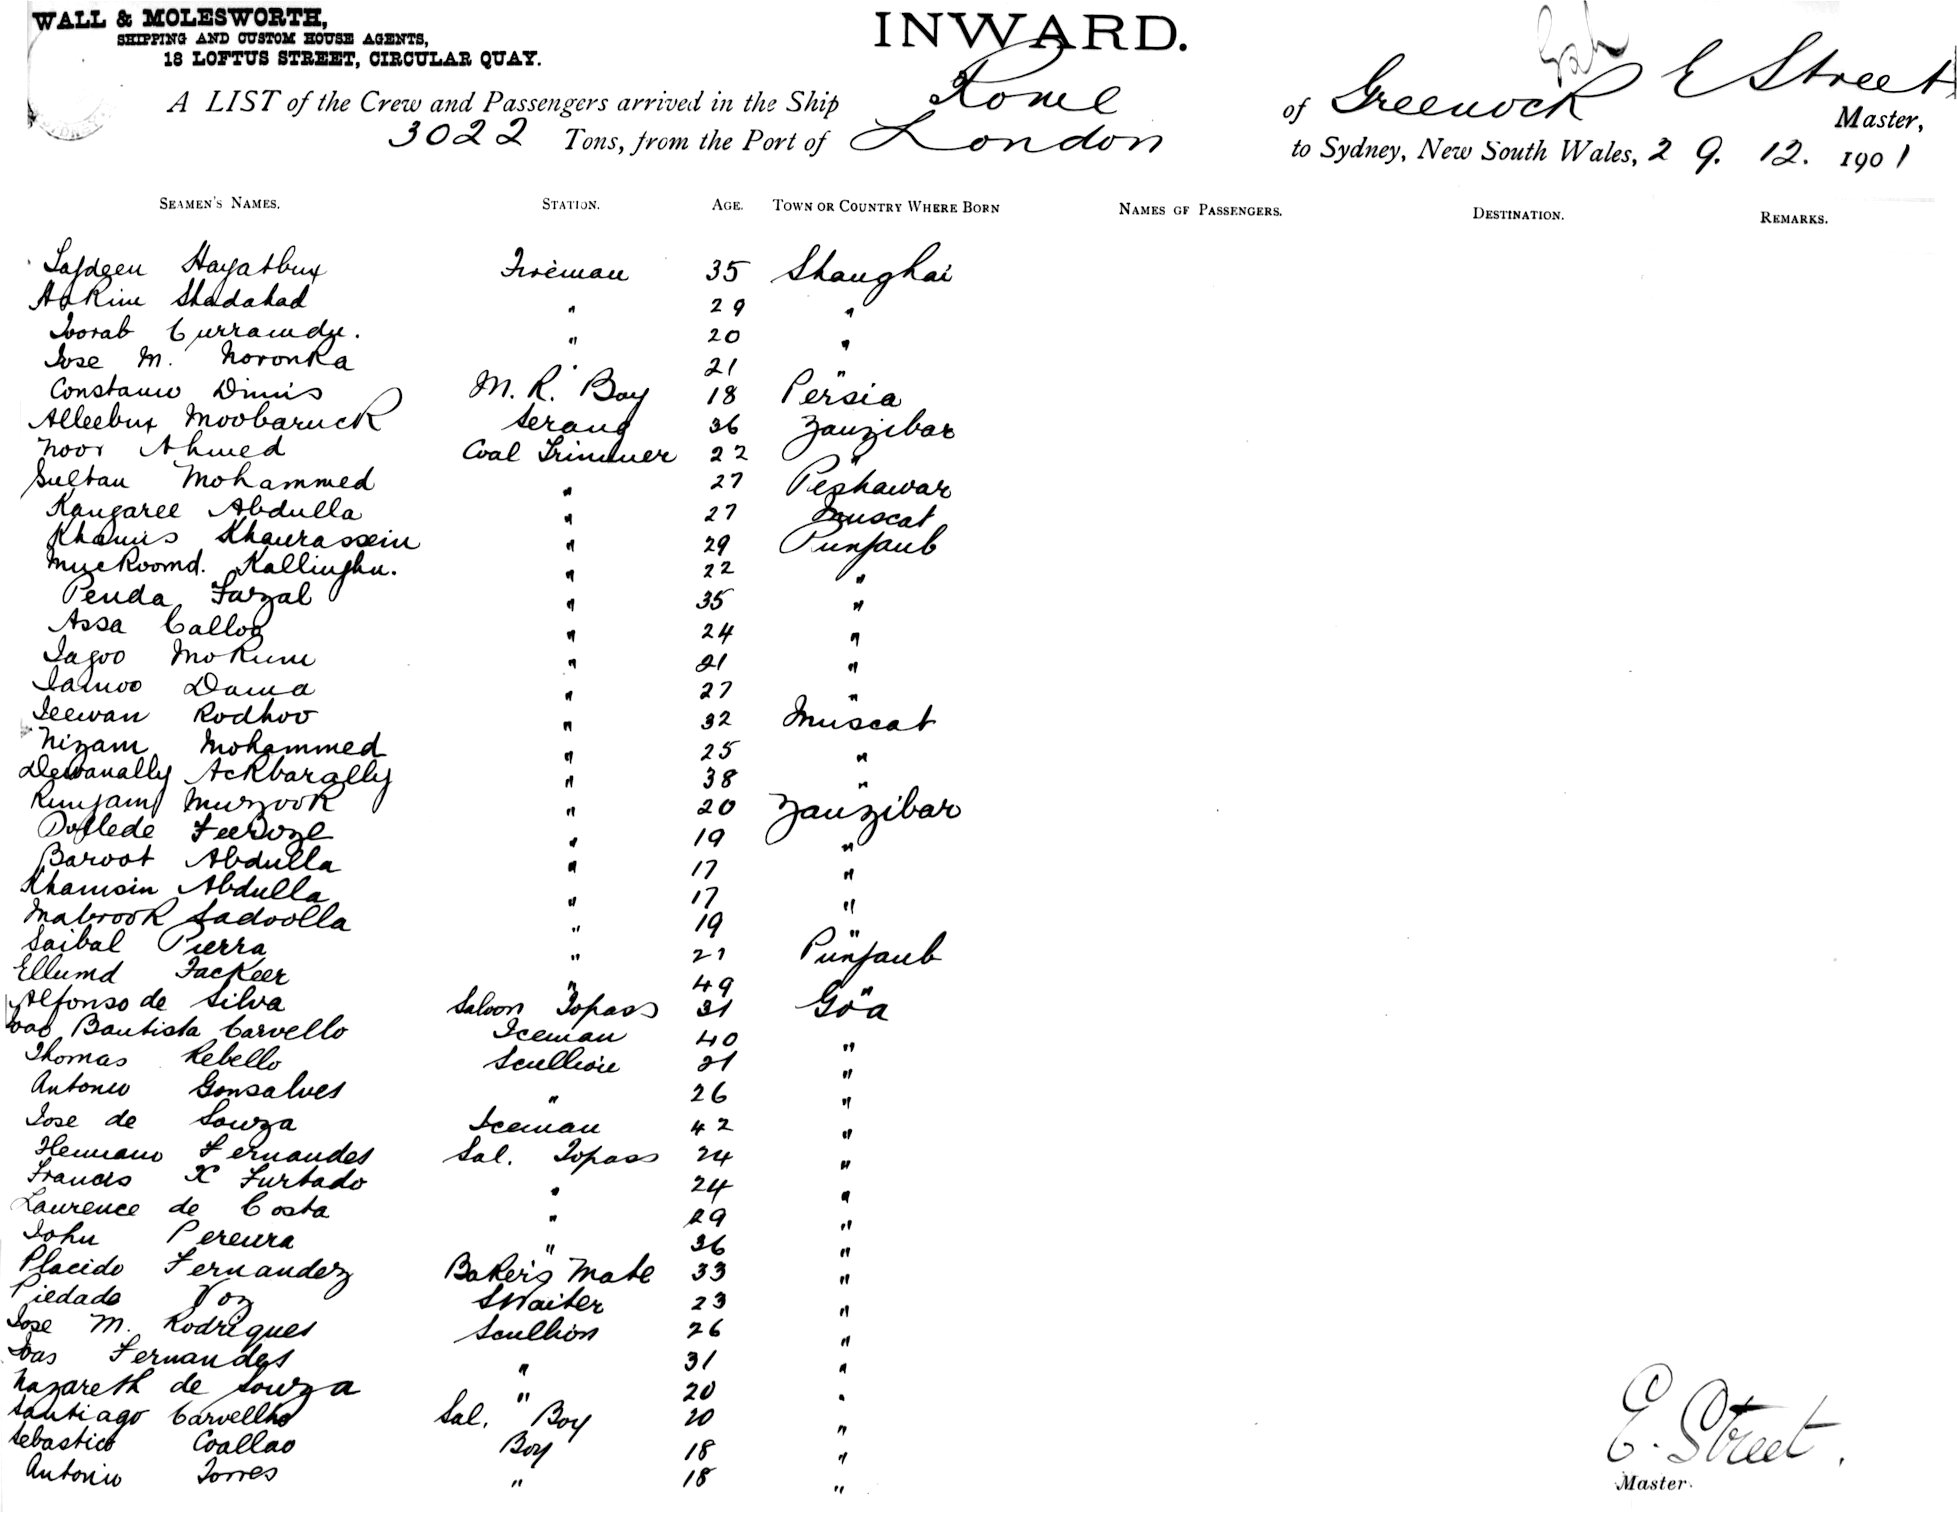 WALL & MOLESWORTH,
SHIPPING AND CUSTOM HOUSE AGENTS,
18 LOFTUS STREET, CIRCULAR QUAY.
INWARD.
A LIST of the Crew and Passengers arrived in the Ship Rome of Greenock E Street Master,
3022 Tons, from the Port of London to Sydney, New South Wales, 29. 12. 1901
SEAMEN'S NAMES. STATION. AGE. TOWN OR COUNTRY WHERE BORN NAMES OF PASSENGERS. DESTINATION. REMARKS.
Hayatbux Fireman 35 Shanghai
Shadahad " 29 "
" 20 "
Jose M. Noronha " 21 "
Dinis M. R. Boy 18 Persia
Alleebux Moobaruck Serang 36 Zanzibar
Noor Ahmed Coal Trimmer 22 "
Sultan Mohammed " 27 Peshawar
Kangaree Abdulla " 27 Muscat
Khamis " 29 Punjaub
" 22 "
Penda Fazal " 35 "
Assa Calloo " 24 "
" 21 "
Dama " 27 "
Jeewan Rodhoo " 32 Muscat
Nizam Mohammed " 25 "
Dewanally Ackbarally " 38 "
Murzook " 20 Zanzibar
Feeroze " 19 "
Baroot Abdulla " 17 "
Khamsin Abdulla " 17 "
Mabrook Sadoolla " 19 "
Saibal Pierra " 21 Punjaub
Ellumd Fackeer " 49 "
Alfonso de Silva Saloon Topass 31 Goa
Joao Bautista Carvello Iceman 40 "
Thomas Rebello Scullion 21 "
Antonio Gonsalves " 26 "
Jose de Souza Iceman 42 "
Fernandes Sal. Topass 24 "
Francis X Furtado " 24 "
Laurence de Costa " 29 "
John Pereira " 36 "
Placido Fernandez Baker's Mate 33 "
Piedade Voz SWaiter 23 "
Jose M. Rodrigues Scullion 26 "
Joas Fernandes " 31 "
Nazareth de Souza " 20 "
Santiago Carvellho Sal. Boy 20 "
Coallao Boy 18 "
Antonio Torres " 18 "
E. Street.
Master.